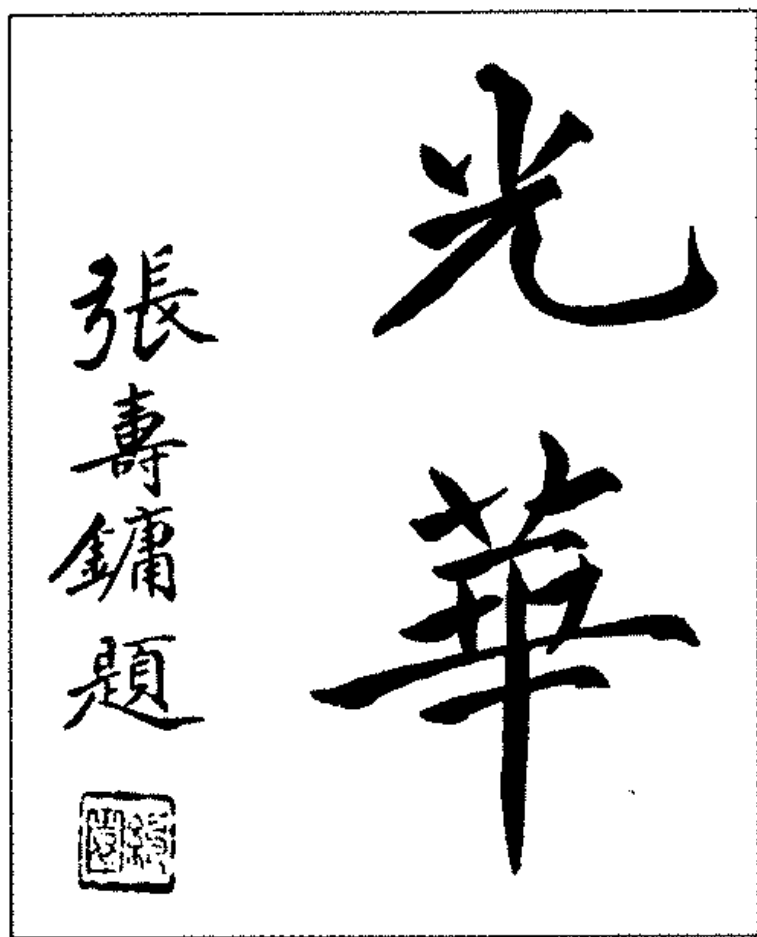 光華
張壽鏞題